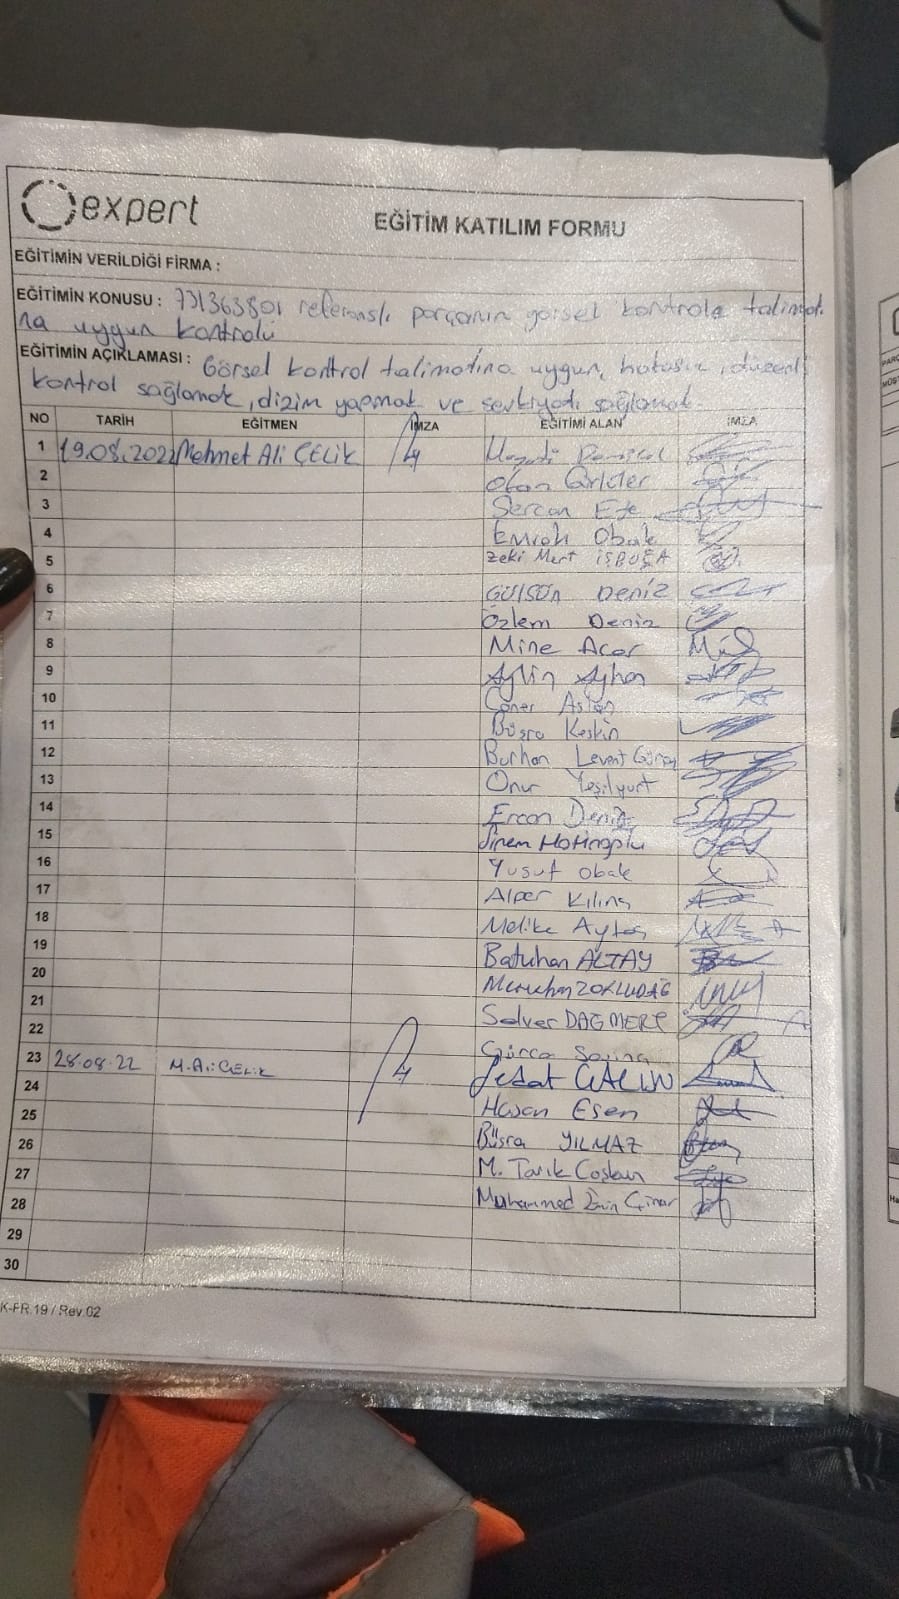 expert
EĞİTİM KATILIM FORMU
EĞİTİMİN VERİLDİĞİ FİRMA :
EĞİTİMİN KONUSU : 731363801 referanslı parçanın görsel kontrole talimatı
na uygun kontrolü
EĞİTİMİN AÇIKLAMASI : Görsel kontrol talimatına uygun, hatasız, düzenli
kontrol sağlamak, dizim yapmak ve sevkiyatı sağlamak.
NO TARİH EĞİTMEN İMZA EĞİTİMİ ALAN İMZA
1 19.08.2022 Mehmet Ali ÇELİK
2 Okan
3 Sercan Efe
4 Emrah Obak
5 Zeki Mert İŞBUĞA
6 GÜLSÜN DENİZ
7 Özlem Deniz
8 Mine Acar
9 Aylin Ayhan
10 Caner Aslan
11 Büşra Keskin
12 Burhan Levent
13 Onur Yeşilyurt
14 Ercan Deniz
15 Sinem Hatinoğlu
16 Yusuf Obak
17 Alper Kılınç
18 Melike Aytaş
19 Batuhan ALTAY
20
21 DAGMERT
22
23 28.08.22 M.Ali ÇELİK
24 Sedat ÇALIM
25 Hasan Esen
26 Büşra YILMAZ
27 M. Tarık Coşkun
28 Muhammed Emin Çınar
29
30
K-FR.19 / Rev.02